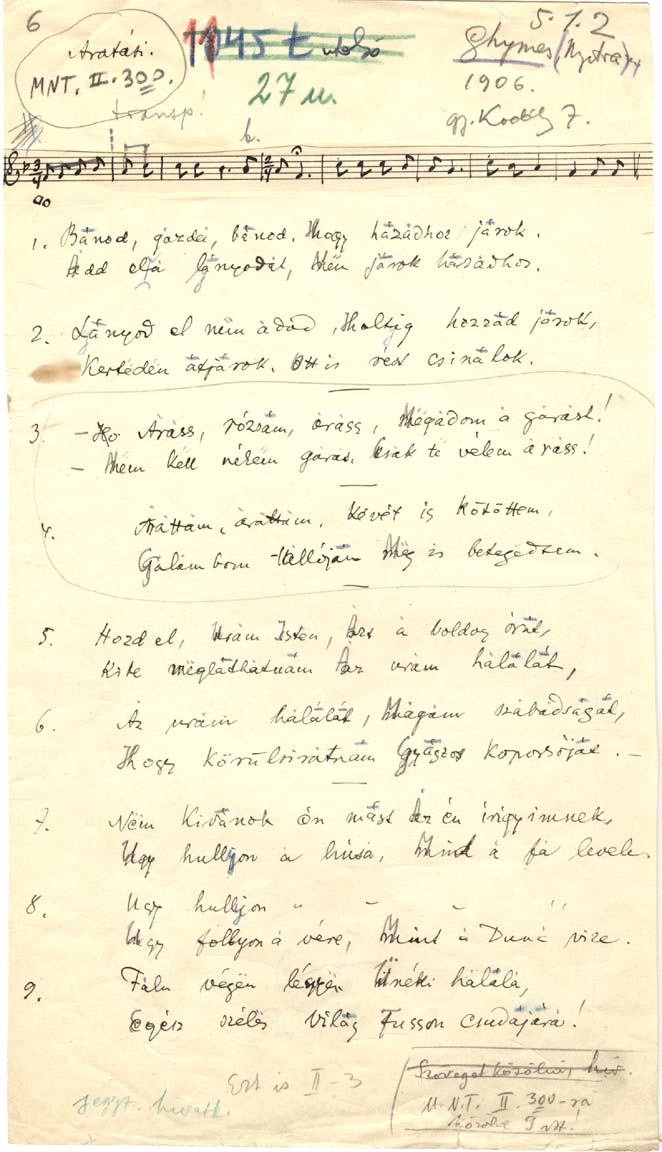 6
Aratási.
MNT. II. 300.
1145 t utolsó
27 u.
5.7.2
Ghymes (Nyitra)
1906.
gy. Kodály Z.
transp!
k.
1. Bánod, gazda, bánod, Hogy házadhoz járok.
Add elja lányodat, Nem járok házadhoz.
2. Lányod el nem adod, Holtig hozzád járok,
Kerteden átjárok, Ott is rést csinálok.
3. – Arass, rózsám, arass, Megadom a garast!
– Nem kell nékem garas, Csak te vélem arass!
4. Arattam, arattam, Kövét is kötöttem,
Galambom Még is betegedtem.
5. Hozd el, Uram Isten, Azt a boldog órát,
Kite megláthatnám Az uram halálát,
6. Az uram halálát, Magam szabadságát,
Hogy körülsiratnám Gyászos koporsóját. –
7. Nem kivánok én mást Az én irigyimnek,
Ugy hulljon a húsa, Mind a fa levele.
8. Ugy hulljon " " " "
Ugy follyon a vére, Mint a Duna vize.
9. Falu végén légyen Űnéki halála,
Egész széles világ Fusson csudájára!
Ezt is II–3
jegyz. hivatk.
Szöveget közölni, hiv.
M.N.T. II. 300-ra